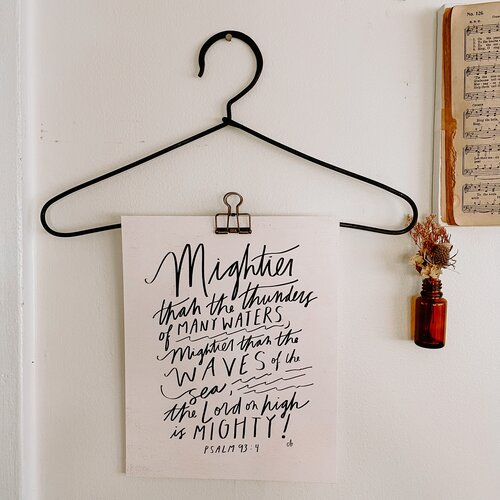 No. 126
Mightier
than the thunders
of MANY WATERS,
Mightier than the
WAVES of the
sea,
the Lord on high
is MIGHTY!
PSALM 93:4
cb